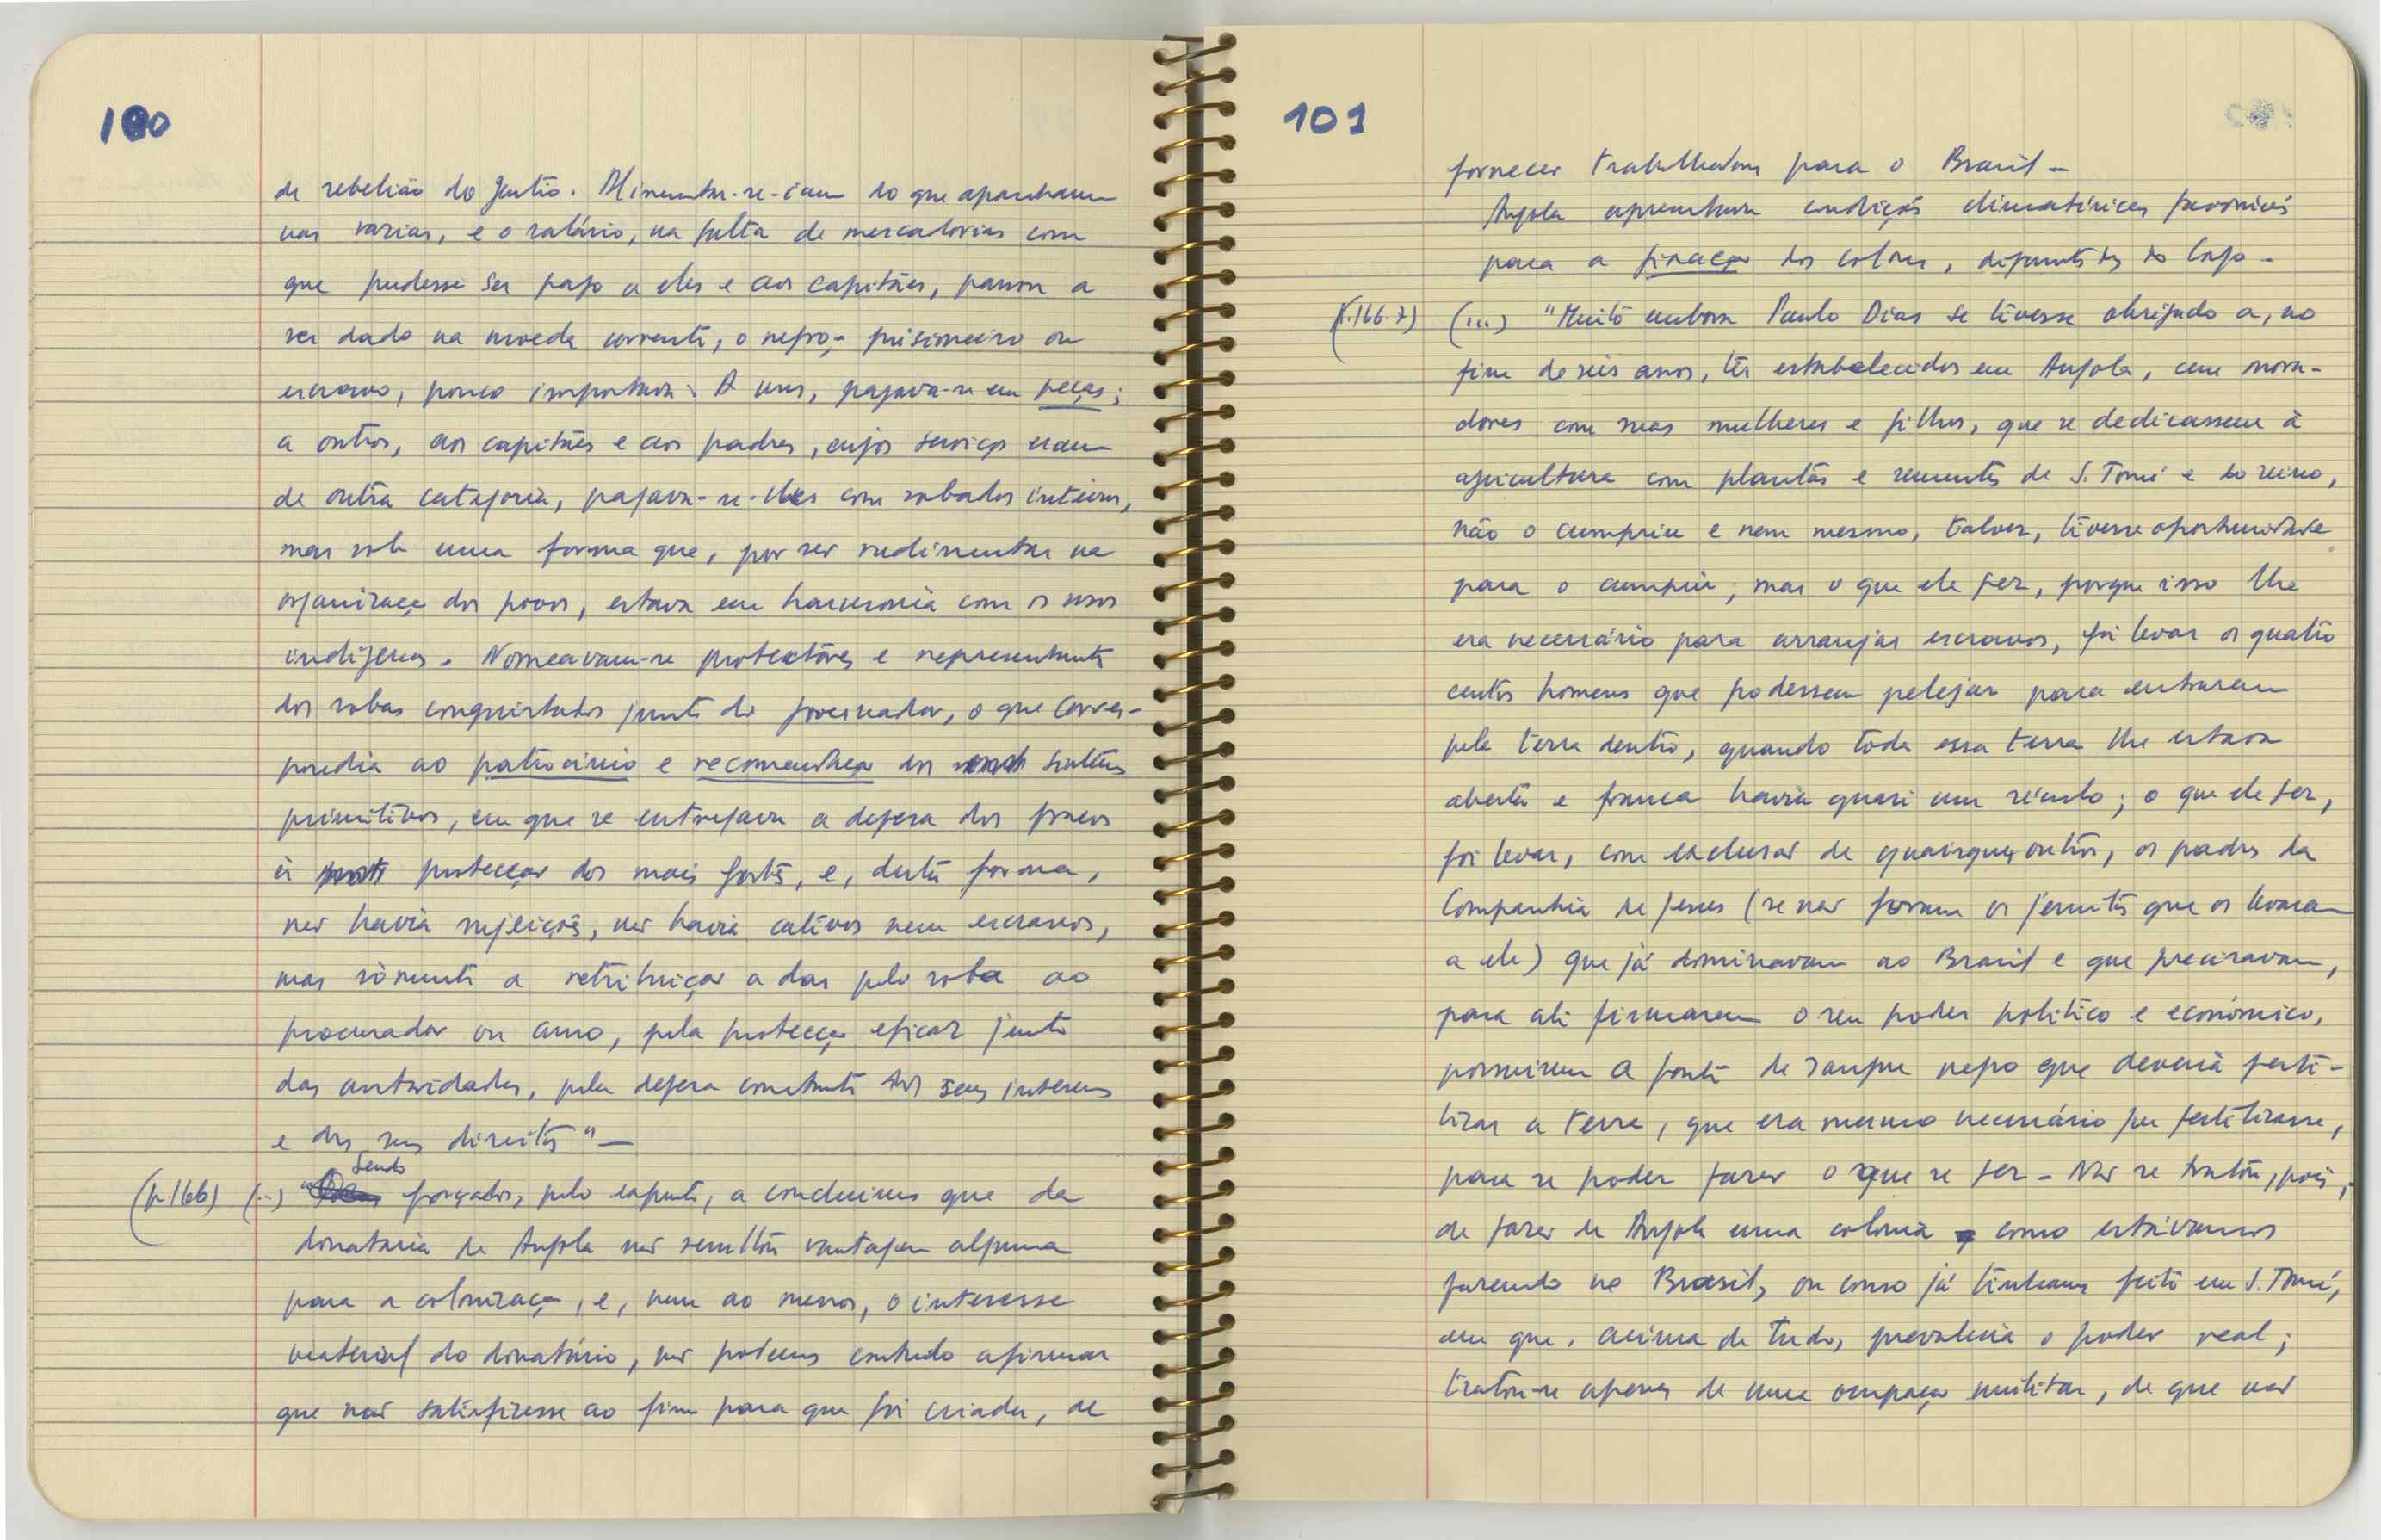 100
de rebelião do gentio. Alimentar-se-iam do que apanhavam
nas razias, e o salário, na falta de mercadorias com
que pudesse ser pago a eles e aos capitães, passou a
ser dado na moeda corrente, o negro, prisioneiro ou
escravo, pouco importava. A uns, pagava-se em peças;
a outros, aos capitães e aos padres, cujos serviços eram
de outra categoria, pagava-se-lhes com sobados inteiros,
mas sob uma forma que, por ser rudimentar na
organização dos povos, estava em harmonia com os usos
indígenas. Nomeavam-se protectores e representantes
dos sobas conquistados junto do governador, o que corres-
pondia ao patrocínio e recomendação dos sistemas
primitivos, em que se entregava a defesa dos fracos
à protecção dos mais fortes, e, desta forma,
não havia sujeições, não havia cativos nem escravos,
mas sòmente a retribuição a dar pelo soba ao
procurador ou amo, pela protecção eficaz junto
das autoridades, pela defesa constante dos seus interesses
e dos seus direitos" —
(p.166) (...) "Sendo forçados, pelo exposto, a concluirmos que da
donataria de Angola não resultou vantagem alguma
para a colonização, e, nem ao menos, o interesse
material do donatário, não podemos contudo afirmar
que não satisfizesse ao fim para que foi criada, de
101
fornecer trabalhadores para o Brasil —
Angola apresentava condições climatéricas favoráveis
para a fixação dos colonos, diferentes das do Congo —
(p.166-7) (...) "Muito embora Paulo Dias se tivesse obrigado a, no
fim de seis anos, ter estabelecidos em Angola, cem mora-
dores com suas mulheres e filhos, que se dedicassem à
agricultura com plantas e sementes de S. Tomé e do reino,
não o cumpriu e nem mesmo, talvez, tivesse oportunidade
para o cumprir, mas o que ele fez, porque isso lhe
era necessário para arranjar escravos, foi levar os quatro
centos homens que podessem pelejar para entrarem
pela terra dentro, quando toda essa terra lhe estava
aberta e franca havia quasi um século; o que ele fez,
foi levar, com exclusão de quaisquer outros, os padres da
Companhia de Jesus (se não foram os jesuítas que os levaram
a ele) que já dominavam no Brasil e que precisavam,
para ali firmarem o seu poder político e económico,
possuirem a fonte de sangue negro que deveria ferti-
lizar a terra, que era mesmo necessário que fertilizasse,
para se poder fazer o que se fez — Não se tratou, pois,
de fazer de Angola uma colonia como estávamos
fazendo no Brasil, ou como já tinhamos feito em S. Tomé,
em que, acima de tudo, prevalecia o poder real;
tratou-se apenas de uma ocupação militar, de que não